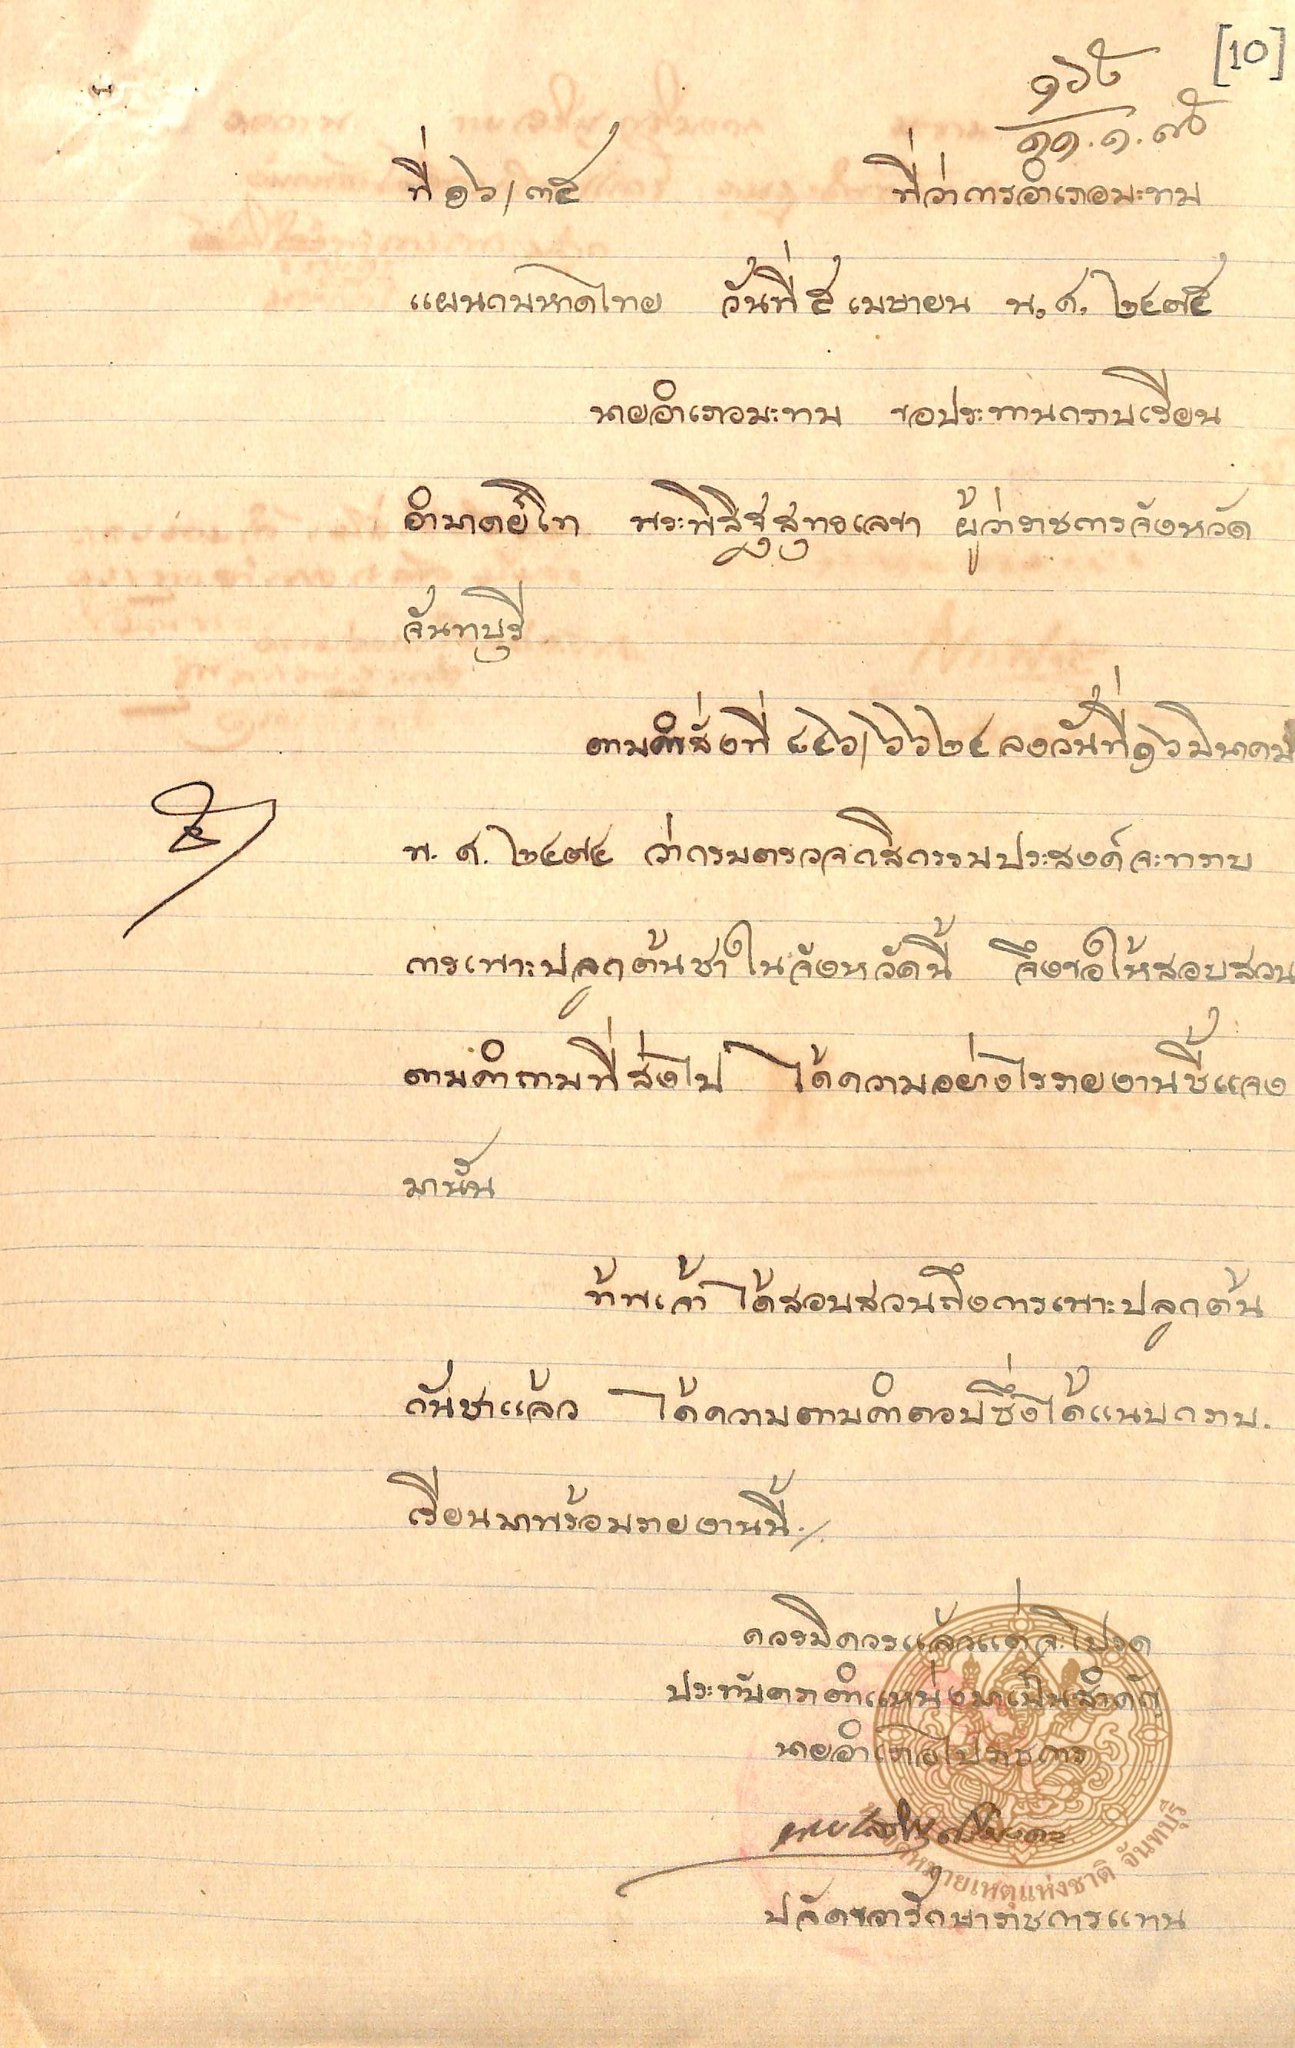 [10]
๑๖๕
๑๑.๑.๗๕
ที่ ๑๖/๓๕ ที่ว่าการอำเภอมะขาม
แผนกมหาดไทย วันที่ ๕ เมษายน พ.ศ. ๒๔๗๕
นายอำเภอมะขาม ขอประทานกราบเรียน
อำมาตย์โท พระพิสิฐสุทธเลขา ผู้ว่าราชการจังหวัด
จันทบุรี
ตามคำสั่งที่ ๔๔๖/๖๖๒๔ ลงวันที่ ๑๖ มีนาคม
พ.ศ. ๒๔๗๔ ว่ากรมตรวจกสิกรรมประสงค์จะทราบ
การเพาะปลูกต้นชาในจังหวัดนี้ จึงขอให้สอบสวน
ตามคำถามที่ส่งไป ได้ความอย่างไรรายงานชี้แจง
มานั้น
ข้าพเจ้า ได้สอบสวนถึงการเพาะปลูกต้น
กันชาแล้ว ได้ความตามคำตอบซึ่งได้แนบกราบ
เรียนมาพร้อมรายงานนี้./
ควรมิควรแล้วแต่จะโปรด
ประทับตราตำแหน่งมาเป็นสำคัญ
นายอำเภอไปราชการ
ปลัดขวารักษาราชการแทน
หอจดหมายเหตุแห่งชาติ จันทบุรี